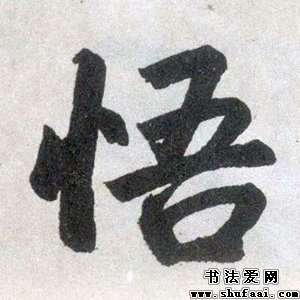 悟
书法爱网
www.shufaai.com